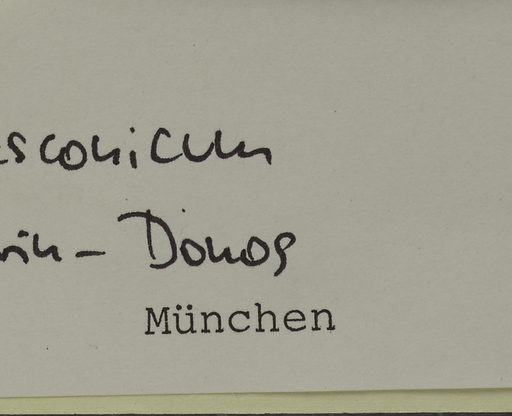 esconicum
rin - Donos
München